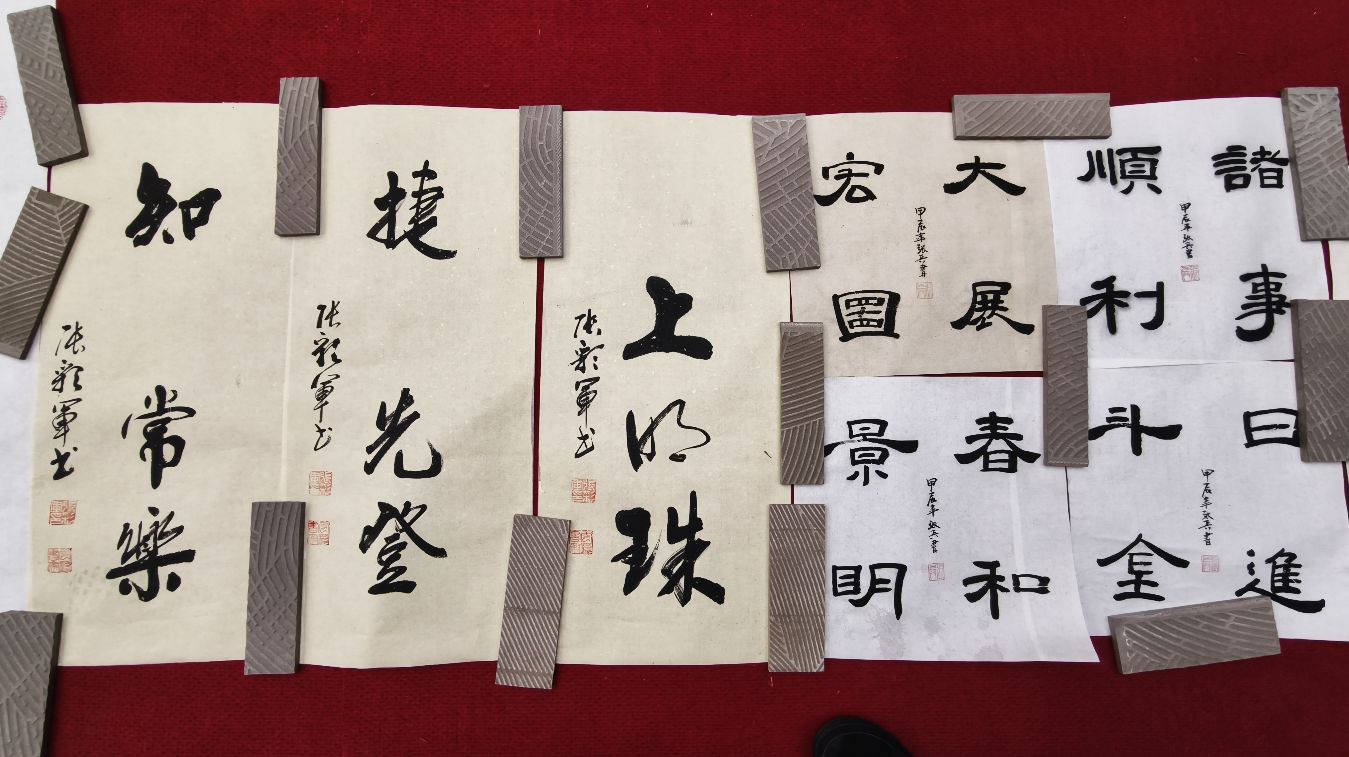 諸事
順利
甲辰年張兵書
日進
斗金
甲辰年張兵書
大展
宏圖
甲辰年張兵書
春和
景明
甲辰年張兵書
上明珠
張彩軍书
捷先登
張彩軍书
知常樂
張彩軍书